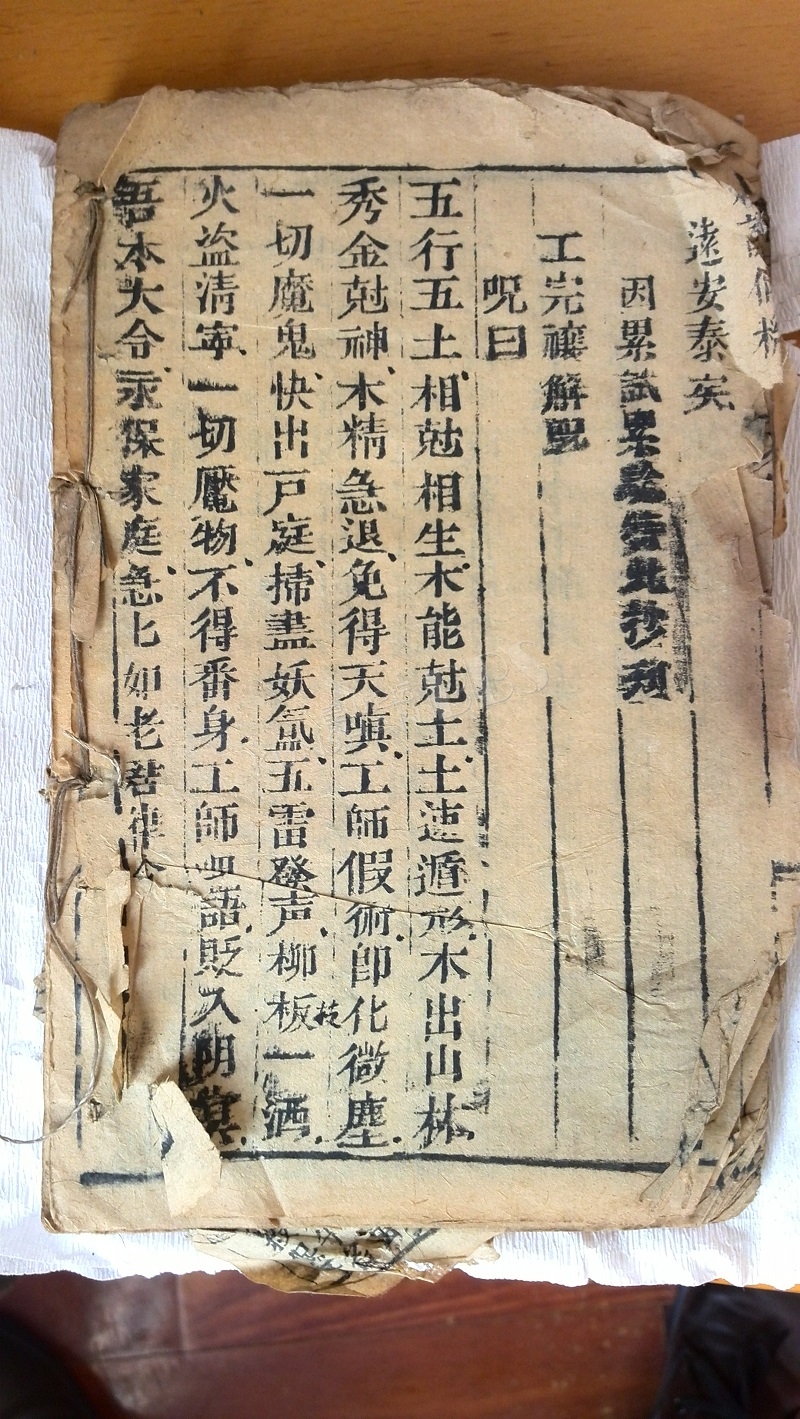 遠安泰矣
因累試累驗
工完禳解呪
呪曰
五行五土相尅相生木能尅土土速遁形木出山林
秀金尅神木精急退免得天嗔工師假術即化微塵
一切魔鬼快出戸庭掃盡妖氣五雷發声柳板枝一洒
火盗清寧一切魘物不得番身工師呪語貶入阴冥
吾本大令永保家庭急匕如老君律令